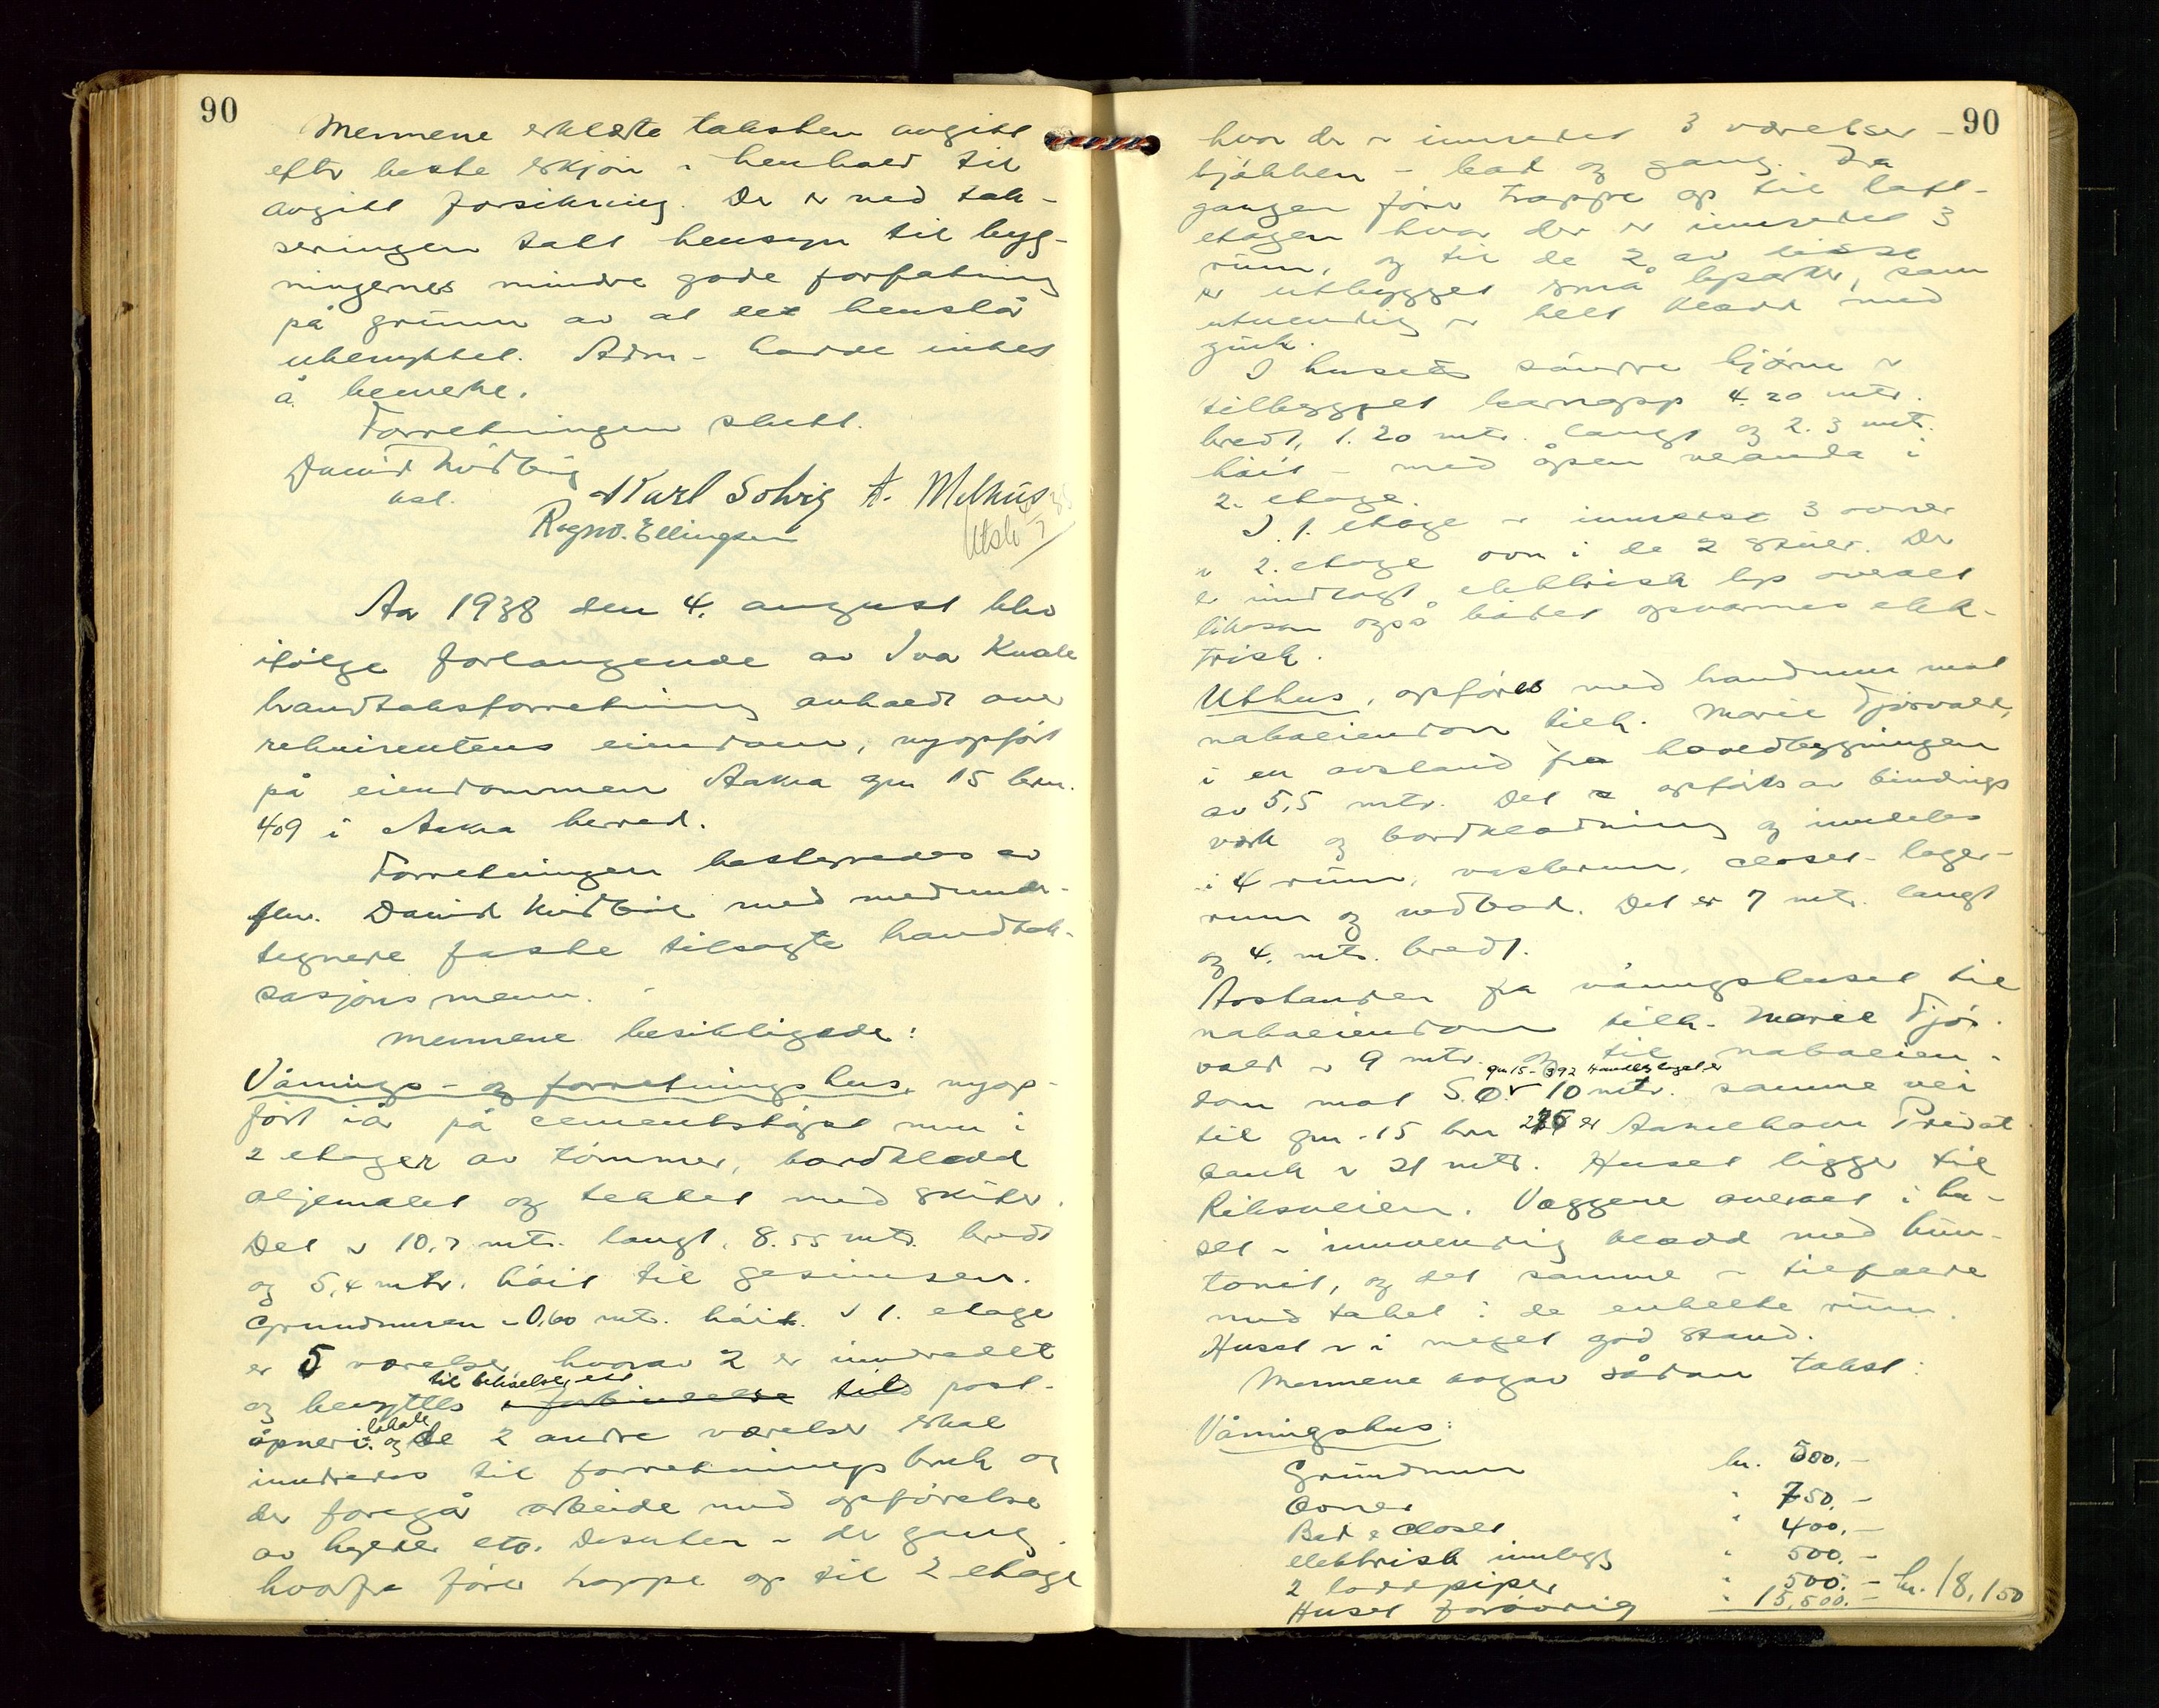 90
Mennene erklærte taksten avgitt
efter beste skjøn i henhold til
avgitt forsikring. Der er ved tak-
seringen tatt hensyn til byg-
ningernes mindre gode forfatning
på grunn av at det henstår
ubenyttet. Adm- hadde intet
å bemerke.
Forretningen slutt.
David Kvitvig
ksl.
Karl Solvig A. Melhus
Ragnv. Ellingsen
Utsk
Aar 1938 den 4. august blev
ifølge forlangende av Ivar Kvale
brandtaksforretning avholdt over
rekvirentens eiendom, nyopført
på eiendommen Aakra gnr 15 brn.
409 i Aakra herred.
Forretningen bestyredes av
flm. David Kvitvig med medunder-
tegnede faste tilsagte brandtak-
sasjonsmenn.
Mennene besiktigede:
Vånings- og forretningshus, nyop-
ført iår på cementstøpt mur i
2 etager av tømmer, bordklædd
oljemalet og tekket med skifer.
Det er 10,7 mtr. langt, 8.55 mtr. bredt
og 5,4 mtr. høit til gesimsen.
Grundmuren er 0,60 mtr. høit. I 1. etage
er 5 værelser hvorav 2 er innredet
til bekvælse ett
og benyttes i forbindelse til post-
lokale
åpneri. og de 2 andre værelser skal
innredes til forretningsbruk og
der foregår arbeide med opførelse
av hyller etc. Desuten er der gang
hvorfra fører trappe op til 2 etage
90
hvor der er innredet 3 værelser -
kjøkken - bad og gang. Fra
gangen fører trappe op til loft-
etagen hvor der er innredet 3
rum, og til de 2 av disse
er utbygget små oparker, som
utvendig er helt klædd med
zink.
I husets søndre hjørne er
tilbygget karnapp 4.20 mtr.
bredt, 1.20 mtr. langt og 2.3 mtr.
høit - med åpen veranda i
2. etage.
I 1. etage er innredet 3 ovner
i 2. etage ovn i de 2 stuer. Der
er indlagt elektrisk lys overalt
likesom også badet opvarmes elek-
trisk.
Uthus, opføres med brandmur mot
naboeiendom tilh. Marie Fjørvald,
i en avstand fra hovedbygningen
av 5,5 mtr. Det er opført av bindings
verk og bordklædning og inndeles
i 4 rum, vaskerum, closet - lager-
rum og vedbod. Det er 7 mtr. langt
og 4. mtr. bredt.
Avstanden fra våningshuset til
naboeiendom tilh. Marie Fjør-
vald er 9 mtr. og til naboeien-
gnr 15 - 392 Handelslaget er
dom mot S.Ø. 10 mtr. samme vei
til gnr. 15 brn 275 er Aakrehavn Privat
bank er 21 mtr. Huset ligger til
Riksveien. Væggene overalt i hu-
set er innvendig klædd med hun-
tonit, og det samme er tilfælde
med taket i de enkelte rum.
Huset er i meget god stand.
Mennene avgav sådan takst:
Våningshus:
Grundmur kr. 500.-
Ovner " 750.-
Bad & closet " 400.-
elektrisk innlegg " 500.-
2 loddpiper " 500.-
Huset forøvrig " 15,500.- kr. 18,150